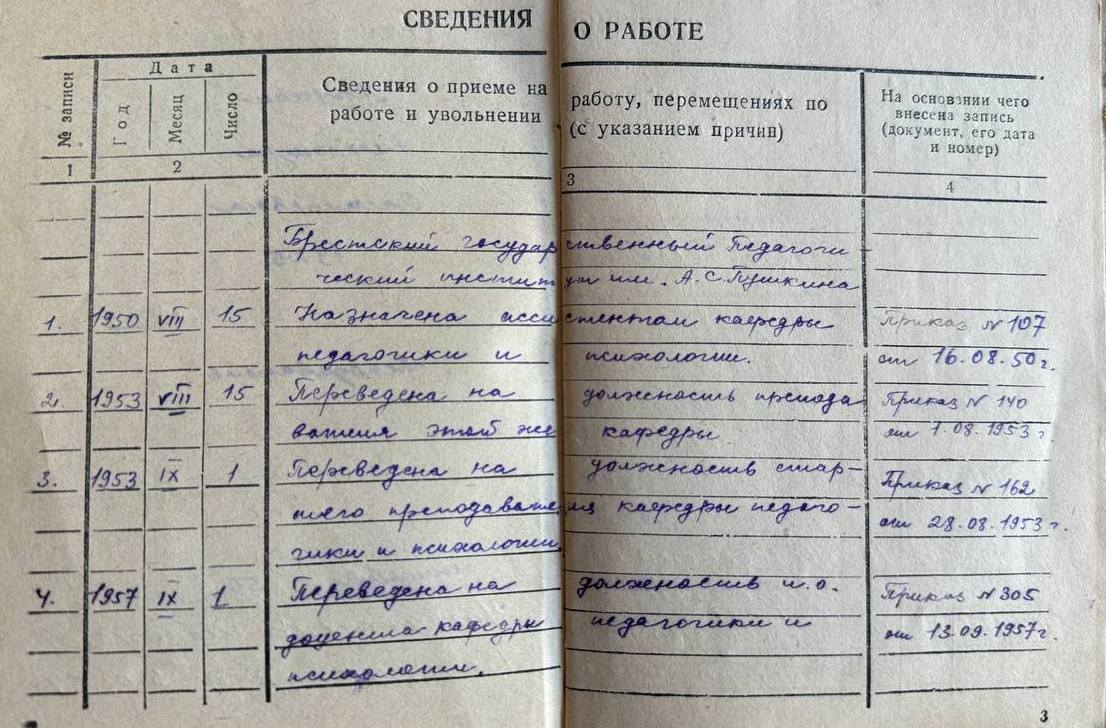 СВЕДЕНИЯ О РАБОТЕ
№ записи
Дата
Год
Месяц
Число
Сведения о приеме на работу, перемещениях по
работе и увольнении (с указанием причин)
На основании чего
внесена запись
(документ, его дата
и номер)
1 2 3 4
Брестский государственный Педагоги-
ческий институт им. А.С.Пушкина
1. 1950 VIII 15 Назначена ассистентом кафедры Приказ № 107
педагогики и психологии. от 16.08.50 г.
2. 1953 VIII 15 Переведена на должность препода Приказ № 140
вателя этой же кафедры. от 1.08.1953 г.
3. 1953 IX 1 Переведена на должность стар- Приказ № 162
шего преподавателя кафедры педаго- от 28.08.1953 г.
гики и психологии
4. 1957 IX 1 Переведена на должность и.о. Приказ № 305
доцента кафедры педагогики и от 13.09.1957 г.
психологии.
3